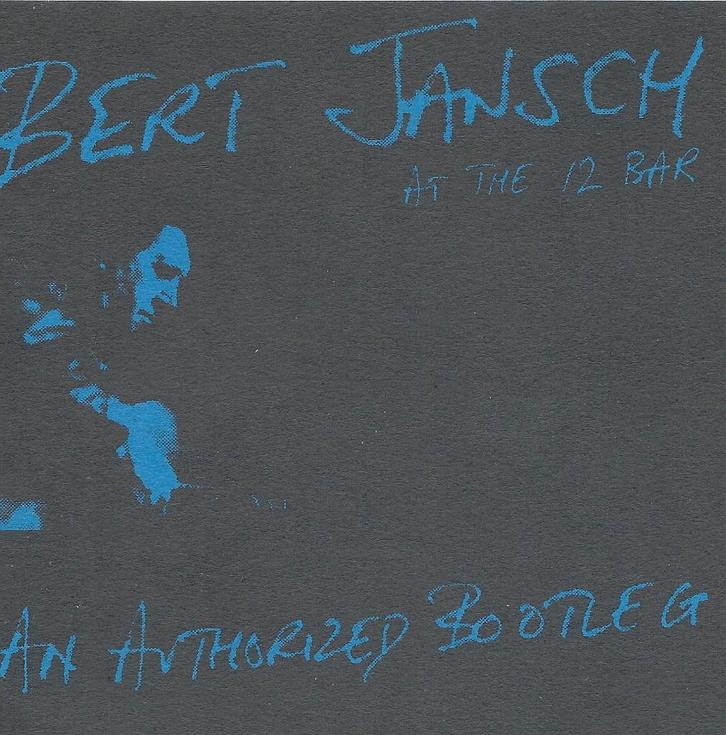 BERT JANSCH
AT THE 12 BAR
AN AUTHORIZED BOOTLEG